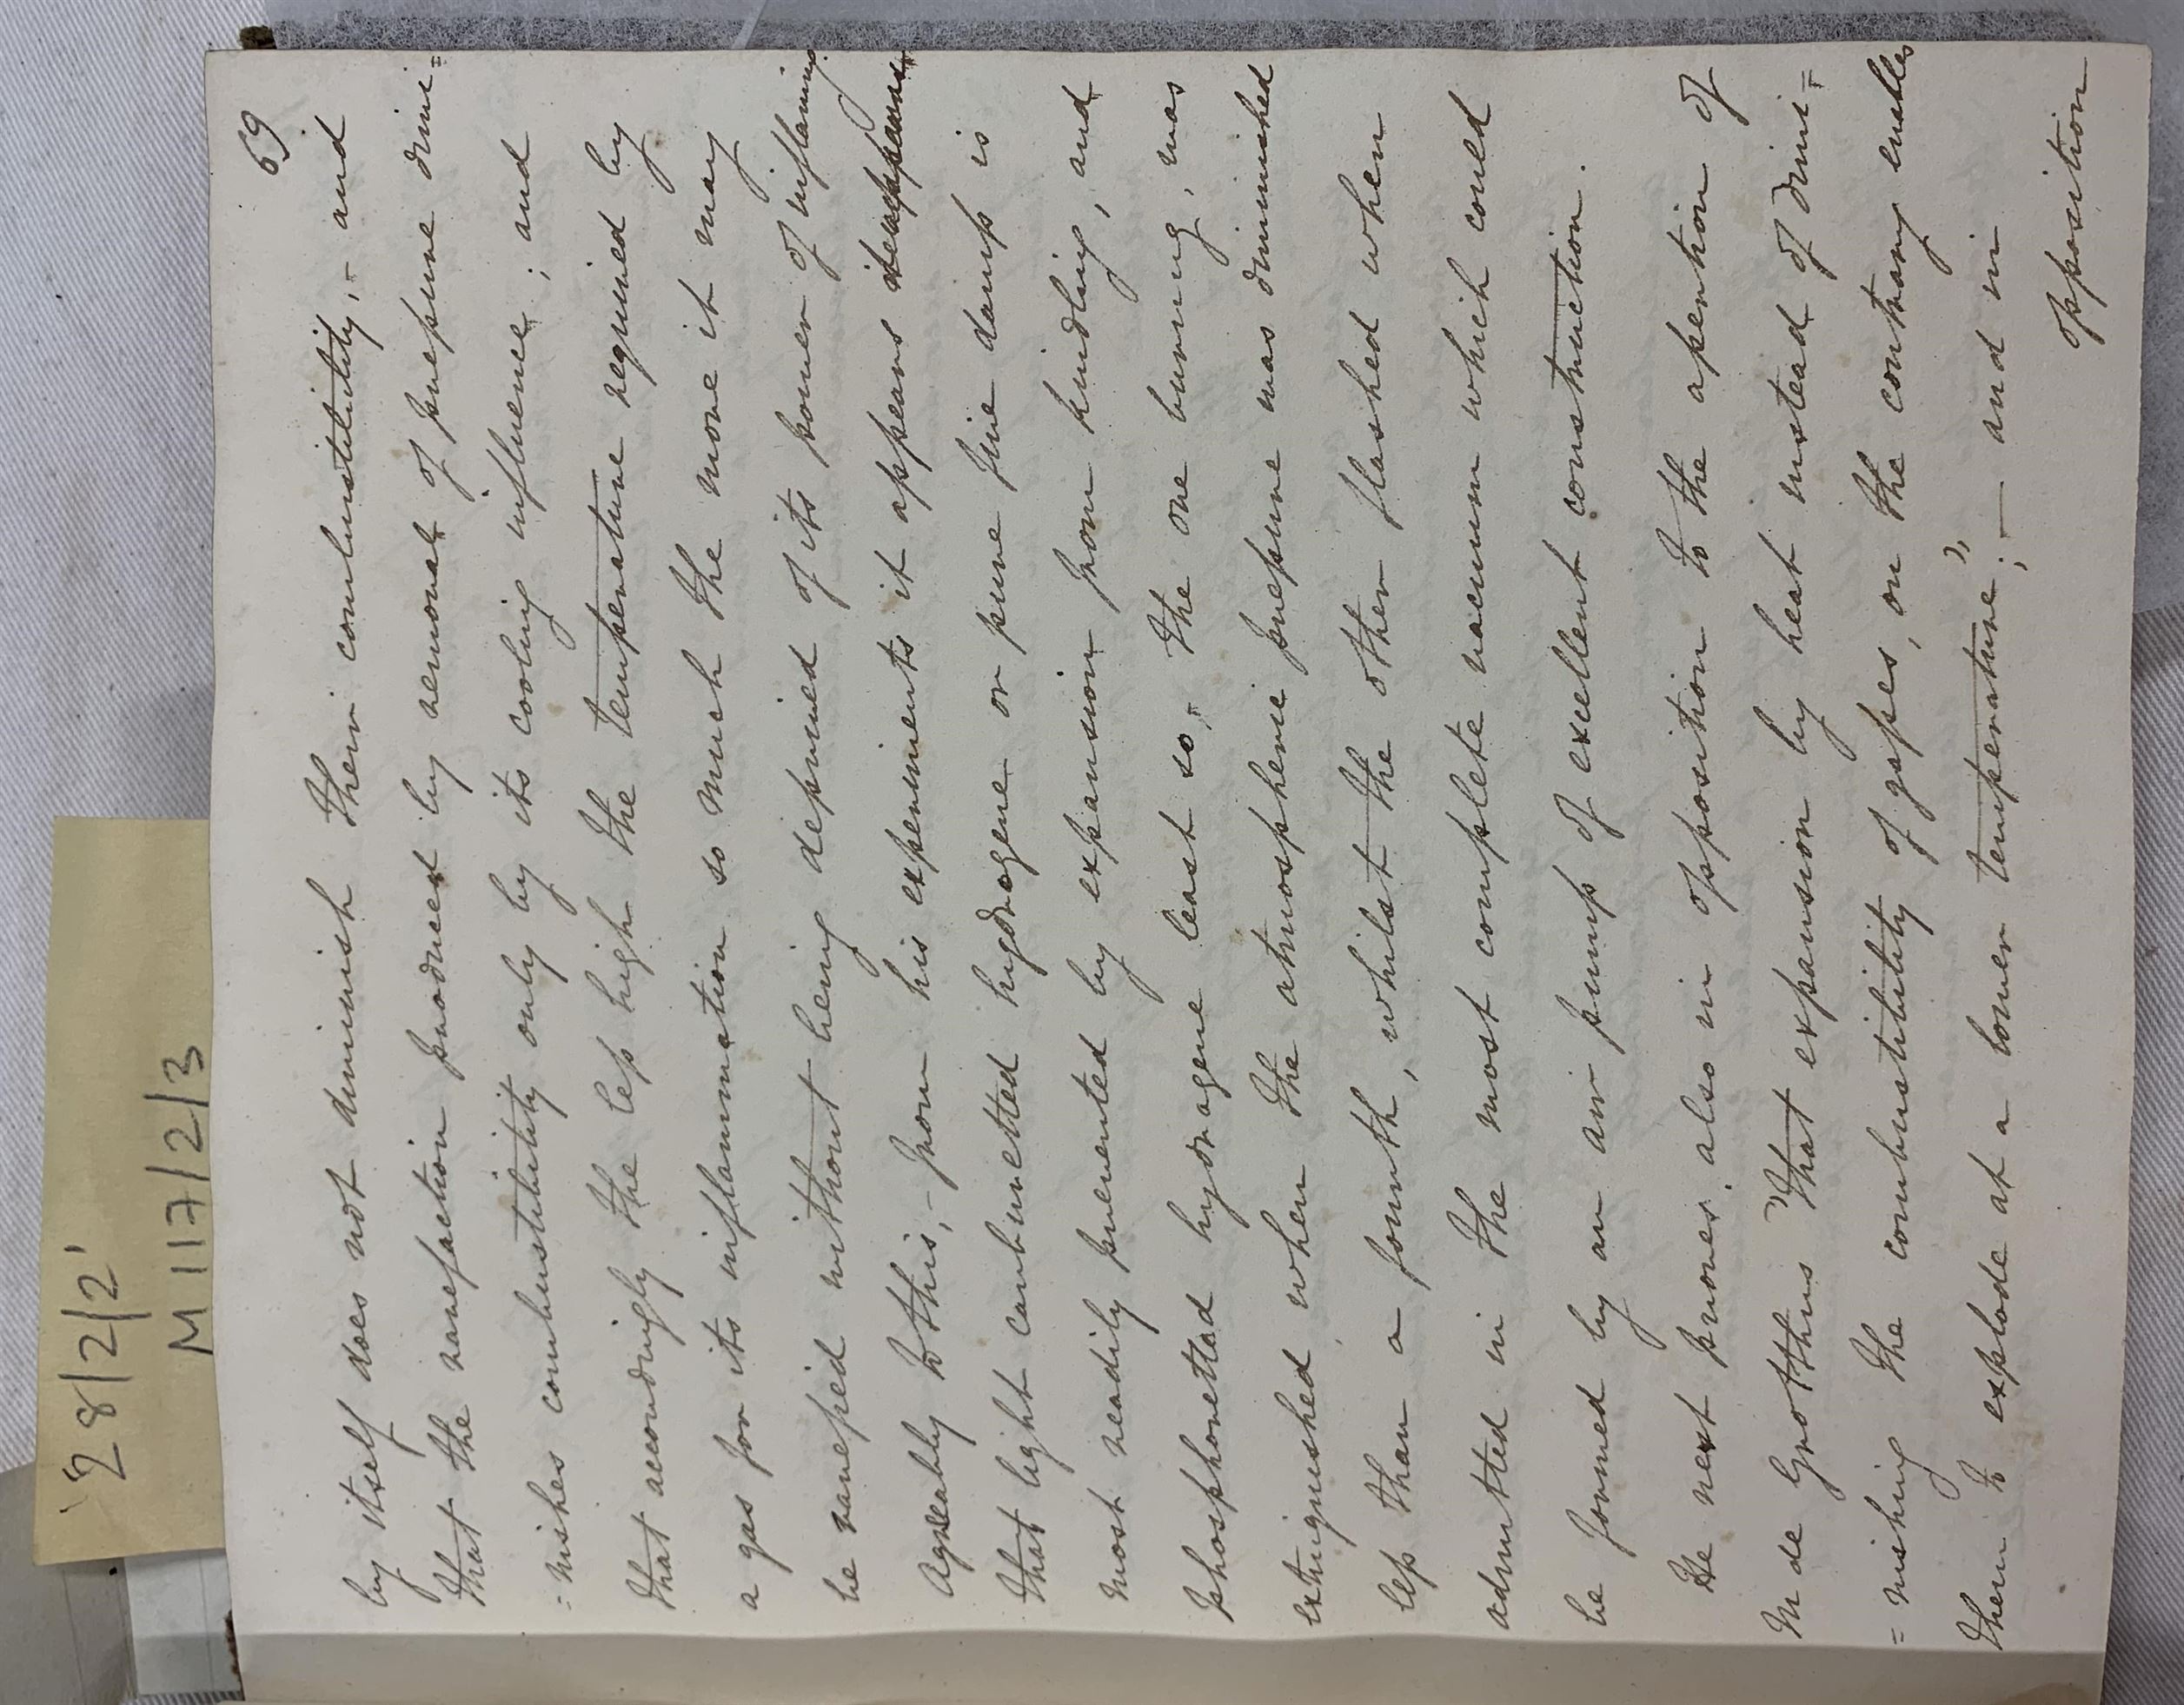 '28/2/2'
M117/2/3
69
by itself does not diminish their combustibility, - and
that the rarefaction produced by removal of pressure dimi=
=nishes combustibility only by its cooling influence; and
that accordingly the less high the temperature required by
a gas for its inflammation so much the more it may
be rarefied without being deprived of its power of inflaming
Agreeably to this, - from his experiments it appears
that light carburetted hydrogene or pure fire damp is
most readily prevented by expansion from kindling, and
phosphoretted hydrogene least so, - the one burning, was
extinguished when the atmospheric pressure was diminished
less than a fourth, whilst the other flashed when
admitted in the most complete vacuum which could
be formed by an air pump of excellent construction.
He next proves, also in opposition to the assertion of
M de Grotthus "that expansion by heat instead of dimi=
=nishing the combustibility of gasses, on the contrary enables
them to explode at a lower temperature;" - and in
opposition